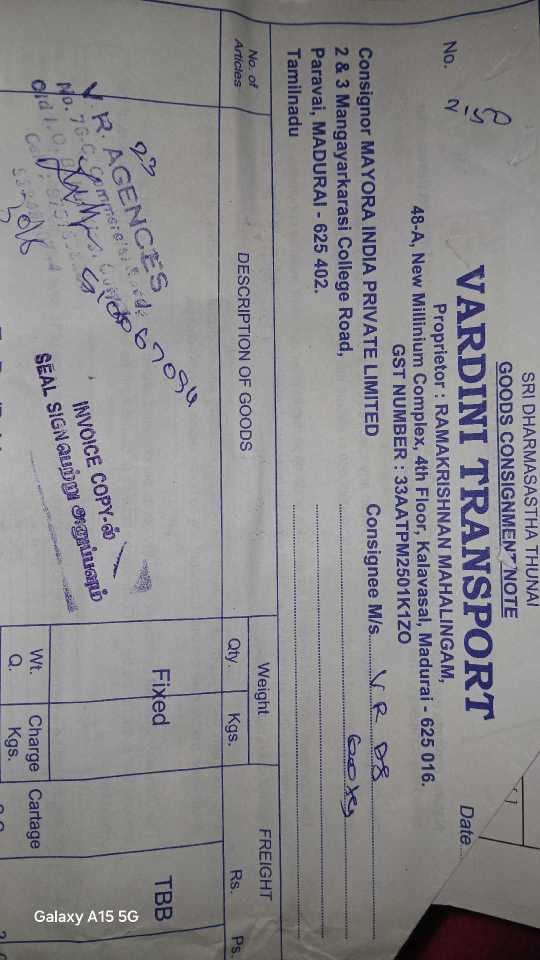 SRI DHARMASASTHA THUNAI
GOODS CONSIGNMENT NOTE
VARDINI TRANSPORT
Proprietor : RAMAKRISHNAN MAHALINGAM,
48-A, New Millinium Complex, 4th Floor, Kalavasal, Madurai - 625 016.
GST NUMBER : 33AATPM2501K1ZO
No.
Date
Consignor MAYORA INDIA PRIVATE LIMITED
2 & 3 Mangayarkarasi College Road,
Paravai, MADURAI - 625 402.
Tamilnadu
Consignee M/s V R
No. of Articles
DESCRIPTION OF GOODS
Weight
Qty. Kgs.
FREIGHT
Rs. Ps.
Fixed
TBB
V. R. AGENCES
INVOICE COPY-ல்
SEAL SIGN பெற்று அனுப்பவும்
Wt. Q.
Charge Kgs.
Cartage
Galaxy A15 5G